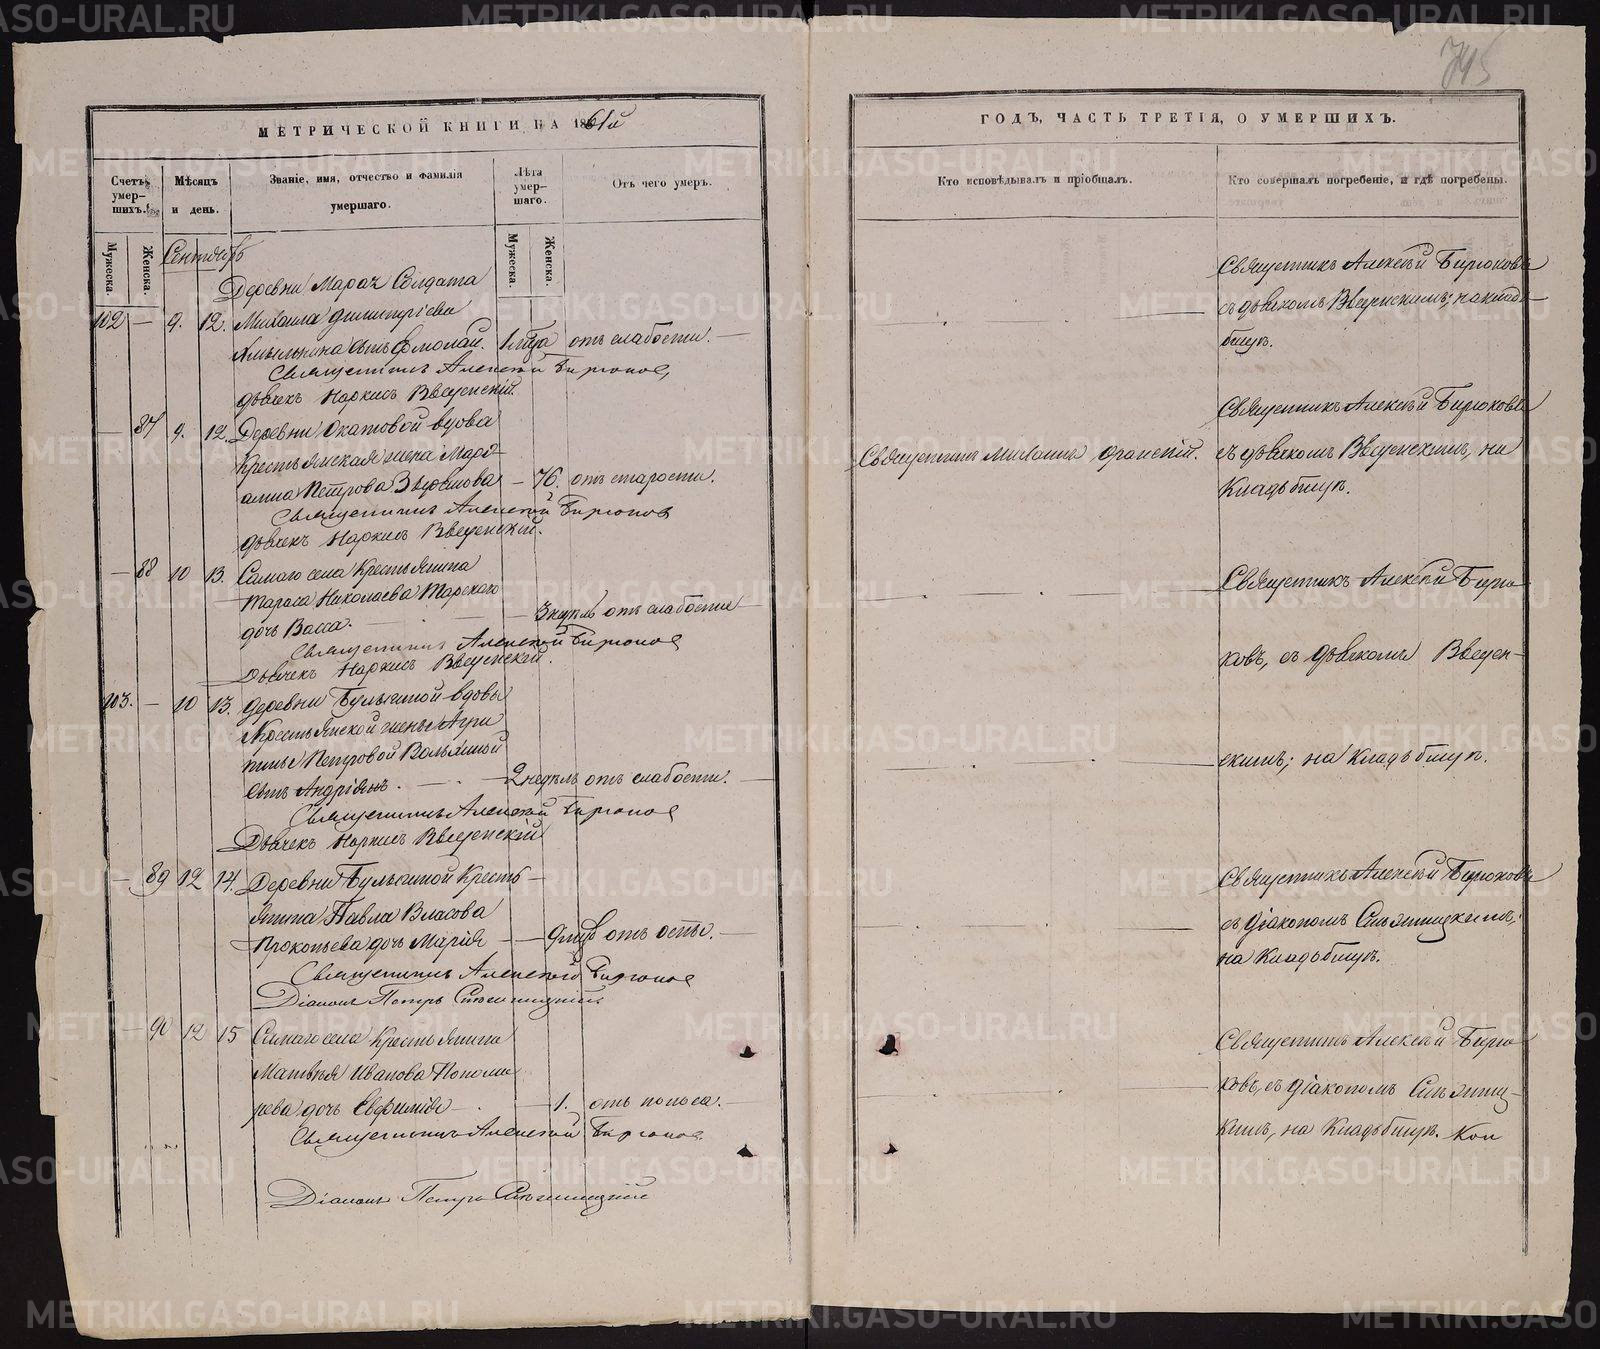 745
МЕТРИЧЕСКОЙ КНИГИ НА 1861й
Счетъ умер-
шихъ.
Мѣсяцъ
и день.
Званіе, имя, отчество и фамилія
умершаго.
Лѣта
умер-
шаго.
Отъ чего умеръ.
Мужеска.
Женска.
Мужеска.
Женска.
Сентябрь
Деревни Мараи Солдата
102 — 9. 12. Михаила Димитріева
сынъ 1 отъ слабости. —
Священникъ Алексѣй Бирюковъ,
дьячекъ Наркисъ Введенскій.
— 87 9. 12. Деревни Окатовой вдова
Крестьянская жена Мара-
Петрова — 76. отъ старости.
Священникъ Алексѣй Бирюковъ
дьячекъ Наркисъ Введенскій.
— 88 10 13. Самаго села Крестьянина
Тараса Николаева
дочь Васса. — 3 недѣль отъ слабости —
Священникъ Алексѣй Бирюковъ
Дьячекъ Наркисъ Введенскій.
103. — 10 13. Деревни вдовы
Крестьянской жены Агри-
пины Петровой
сынъ Андріянъ. — 2 недѣль отъ слабости. —
Священникъ Алексѣй Бирюковъ
Дьячекъ Наркисъ Введенскій
— 89 12 14. Деревни Кресть-
янина Павла Власова
Прокопьева дочь Марія — 9 отъ оспы. —
Священникъ Алексѣй Бирюковъ
Діаконъ Петръ
— 90 12 15 Самаго села Крестьянина
Матвѣя Иванова Поном-
рева дочь Евфимія — — 1. отъ поноса. —
Священникъ Алексѣй Бирюковъ
Діаконъ Петръ
ГОДЪ, ЧАСТЬ ТРЕТІЯ, О УМЕРШИХЪ.
Кто исповѣдывалъ и пріобщалъ.
Кто совершалъ погребеніе, и гдѣ погребены.
Священникъ Алексѣй Бирюковъ
съ дьячкомъ Введенскимъ; на кладь-
бищѣ.
Священникъ Алексѣй Бирюковъ
Священникъ съ дьячкомъ Введенскимъ, на
Кладьбищѣ.
Священникъ Алексѣй Бирю-
ковъ, съ дьячкомъ Введен-
скимъ; на Кладьбищѣ.
Священникъ Алексѣй Бирюковъ
съ діакономъ
на Кладьбищѣ.
Священникъ Алексѣй Бирю-
ковъ, съ діакономъ
кимъ, на Кладьбищѣ.
METRIKI.GASO-URAL.RU